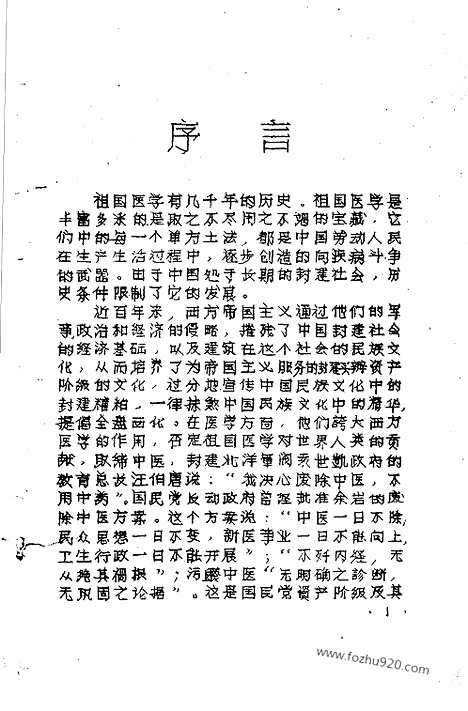 序言
祖国医学有几千年的历史。祖国医学是
丰富多采的是取之不尽用之不竭的宝藏，它
们中的每一个单方土法，都是中国劳动人民
在生产生活过程中，逐步创造的向疾病斗争
的武器。由于中国处于长期的封建社会，历
史条件限制了它的发展。
近百年来，西方帝国主义通过他们的军
事政治和经济的侵略，摧残了中国封建社会
的经济基础，以及建筑在这个社会的民族文
化，从而培养了为帝国主义服务的封建买办资产
阶级的文化，过分地宣传中国民族文化中的
封建糟粕，一律抹煞中国民族文化中的精华，
提倡全盘西化。在医学方面，他们跨大西方
医学的作用，否定祖国医学对世界人类的贡
献，取缔中医，封建北洋军阀袁世凯政府的
教育总长汪伯唐说：“我决心废除中医，不
用中药”。国民党反动政府曾经批准余岩的废
除中医方案。这个方案说：“中医一日不除，
民众思想一日不变，新医事业一日不能向上，
卫生行政一日不能开展”；“不歼内经，无
从绝其祸根”；污蔑中医“无明确之診断，
无巩固之论据”。这是国民党资产阶级及其
1
www.fozhu920.com